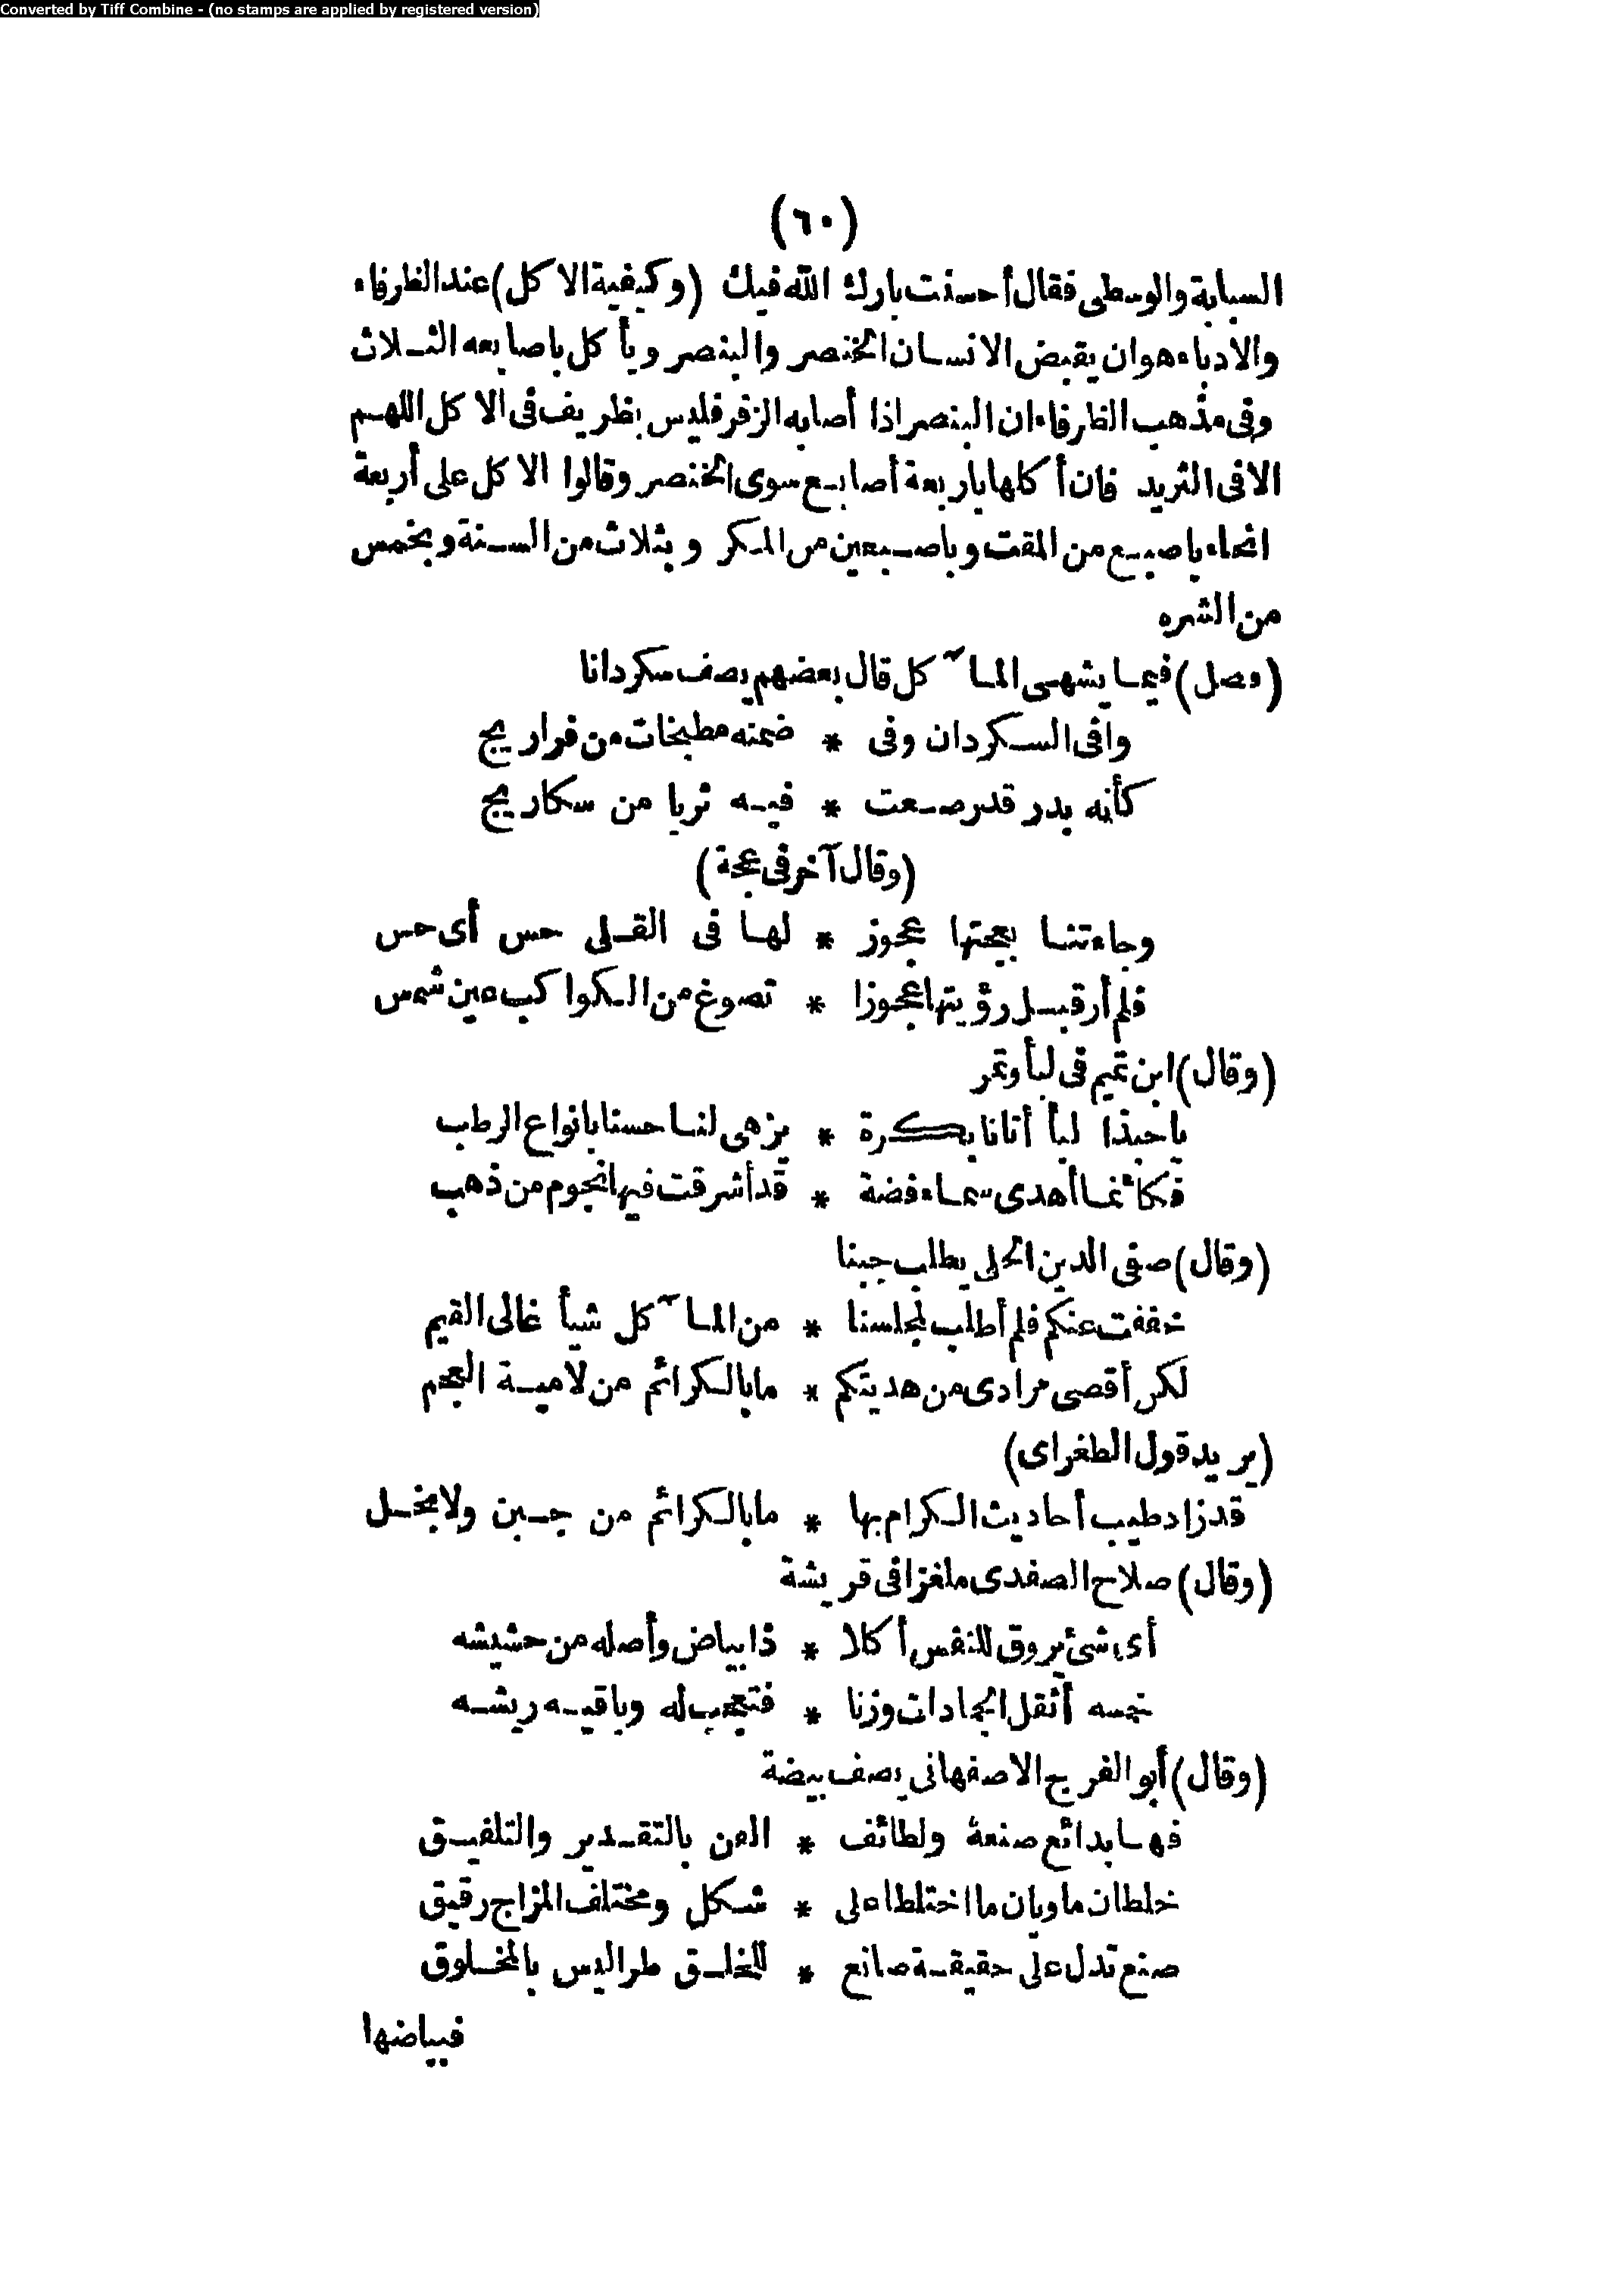 Converted by Tiff Combine - (no stamps are applied by registered version)
(٦٠)
السبابة والوسطى فقال أحسنت بارك الله فيك (وكيفية الاكل) عند الظرفاء
والادباء هو ان يقبض الانسان الخنصر والبنصر ويأكل باصابعه الثلاث
وفى مذهب الظرفاء ان البنصر اذا أصابه الزفر فليس بظريف فى الاكل اللهم
الا فى الثريد فان أكلها باربعة أصابع سوى الخنصر وقالوا الاكل على أربعة
انحاء باصبع من المقت وباصبعين من المكر وبثلاث من السنة وبخمس
من الشره
(وصل) فيما يشهى المآكل قال بعضهم يصف سكردانا
وافى السكردان وفى * ضمنه مطبخات من فراريج
كأنه بدر قد رصعت * فيه ثريا من سكاريج
(وقال آخر فى عجة)
وجاءتنا بعجتها عجوز * لها فى القلى حس أى حس
فلم أر قبل رؤيتها عجوزا * تصوغ من الكواكب عين شمس
(وقال) ابن تميم فى لبأ وتمر
يا حبذا لبأ أتانا بكرة * يزهى لنا حسنا بانواع الرطب
فكأنما أهدى سماء فضة * قد أشرقت فيها نجوم من ذهب
(وقال) صفى الدين الحلى يطلب جبنا
خففت عنكم فلم أطلب لمجلسنا * من المآكل شيأ غالى القيم
لكن أقصى مرادى من هديتكم * ما بالكرائم من لامية العجم
(يريد قول الطغراى)
قد زاد طيب أحاديث الكرام بها * ما بالكرائم من جبن ولا بخل
(وقال) صلاح الصفدى ملغزا فى قريشة
أى شئ يروق للنفس أكلا * ذا بياض وأصله من حشيشه
خمسه أثقل الجمادات وزنا * فتعجب له وباقيه ريشه
(وقال) أبو الفرج الاصفهانى يصف بيضة
فيها بدائع صنعة ولطائف * الفن بالتقدير والتلفيق
خلطان ماويان ما اختلطا على * شكل ومختلف المزاج رقيق
صنع تدل على حقيقة صانع * للخلق طرا ليس بالمخلوق
فبياضها